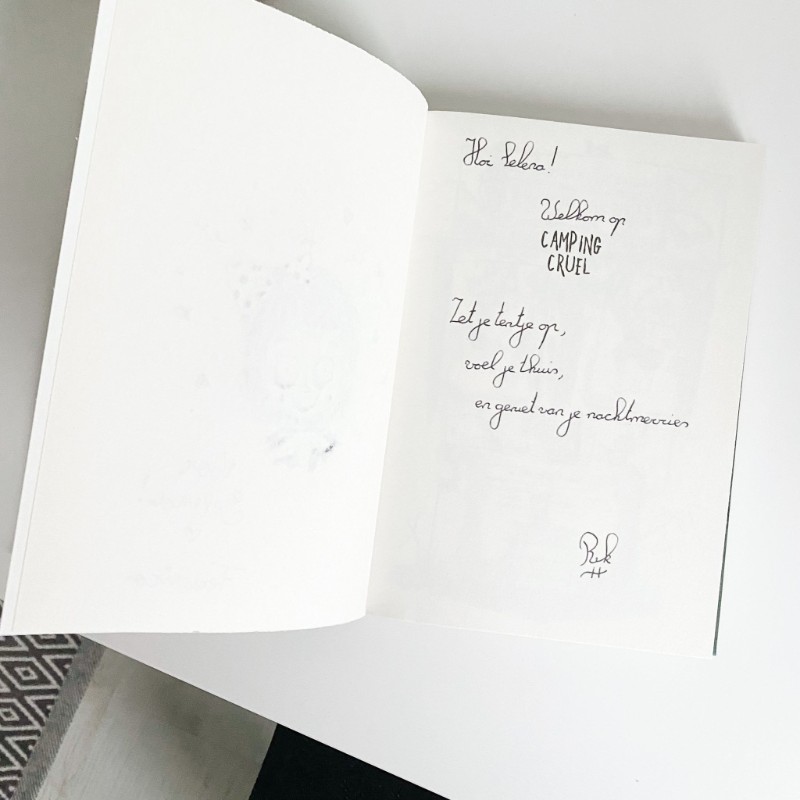 Hoi Selena!
Welkom op
CAMPING
CRUEL
Zet je tentje op,
voel je thuis,
en geniet van je nachtmerries
Rik